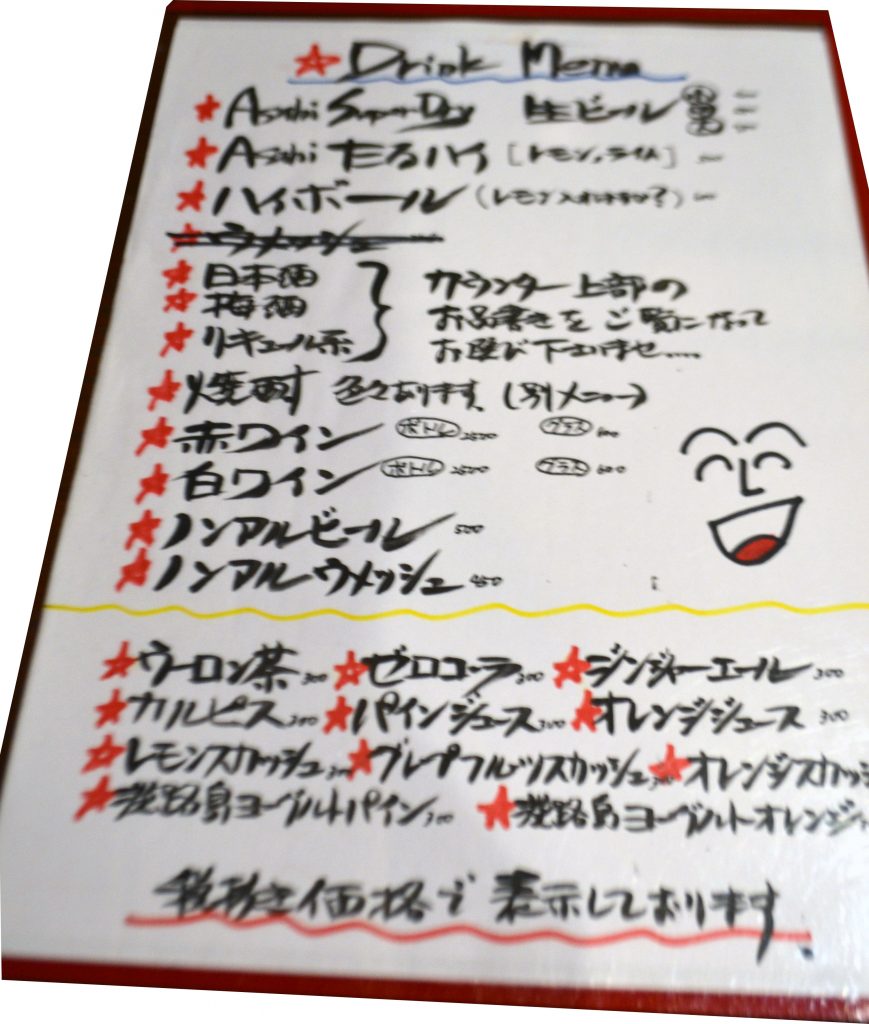 Drink Menu
Asahi SuperDry 生ビール
Asahi たるハイ [レモン,ライム]
ハイボール (レモン入れますか?)
ウメッシュ
日本酒
梅酒
リキュール系
カウンター上部の
お品書きをご覧になって
お選び下さいませ....
焼酎 色々あります。(別メニュー)
赤ワイン ボトル 2500 グラス 600
白ワイン ボトル 2500 グラス 600
ノンアルビール 500
ノンアルウメッシュ 450
ウーロン茶 300 ゼロコーラ 300 ジンジャーエール 300
カルピス 300 パインジュース 300 オレンジジュース 300
レモンスカッシュ 300 グレプフルツスカッシュ 300 オレンジスカッシ
淡路島ヨーグルトパイン 300 淡路島ヨーグルトオレンジ
税抜き価格で表示しております。